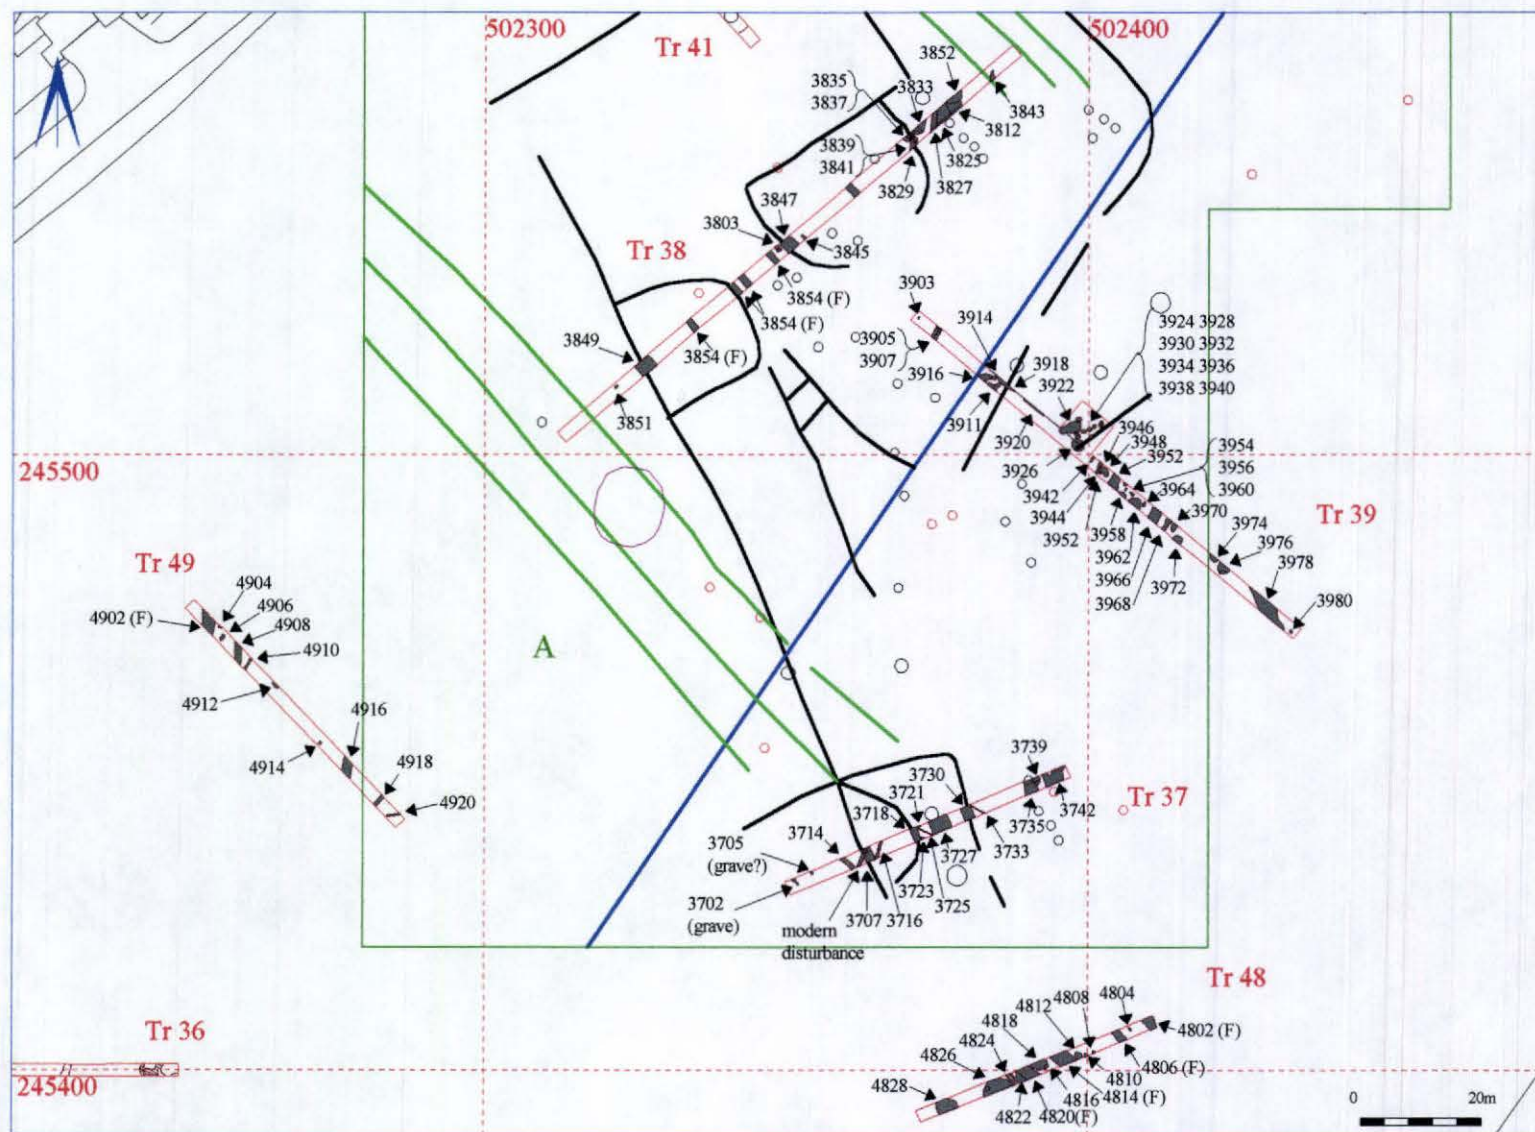 502300
502400
Tr 41
3852
3835
3837
3833
3843
3812
3839
3841
3825
3829
3827
3847
3803
3845
Tr 38
3854 (F)
3854 (F)
3854 (F)
3849
3851
3903
3914
3905
3907
3916
3918
3922
3911
3920
3924 3928
3930 3932
3934 3936
3938 3940
3946
3948
3952
3954
3956
3960
3926
3942
3944
3952
3964
3970
3958
3962
3966
3968
3972
3974
3976
3978
3980
Tr 39
245500
Tr 49
4904
4906
4908
4902 (F)
4910
4912
4916
4914
4918
4920
A
3739
3730
3721
3718
3742
Tr 37
3714
3705
(grave?)
3735
3733
3727
3702
(grave)
3723
3725
3707
3716
modern
disturbance
Tr 48
4804
4808
4812
4818
4802 (F)
4824
4826
4806 (F)
4810
4828
4814 (F)
4816
4822
4820(F)
Tr 36
245400
0
20m